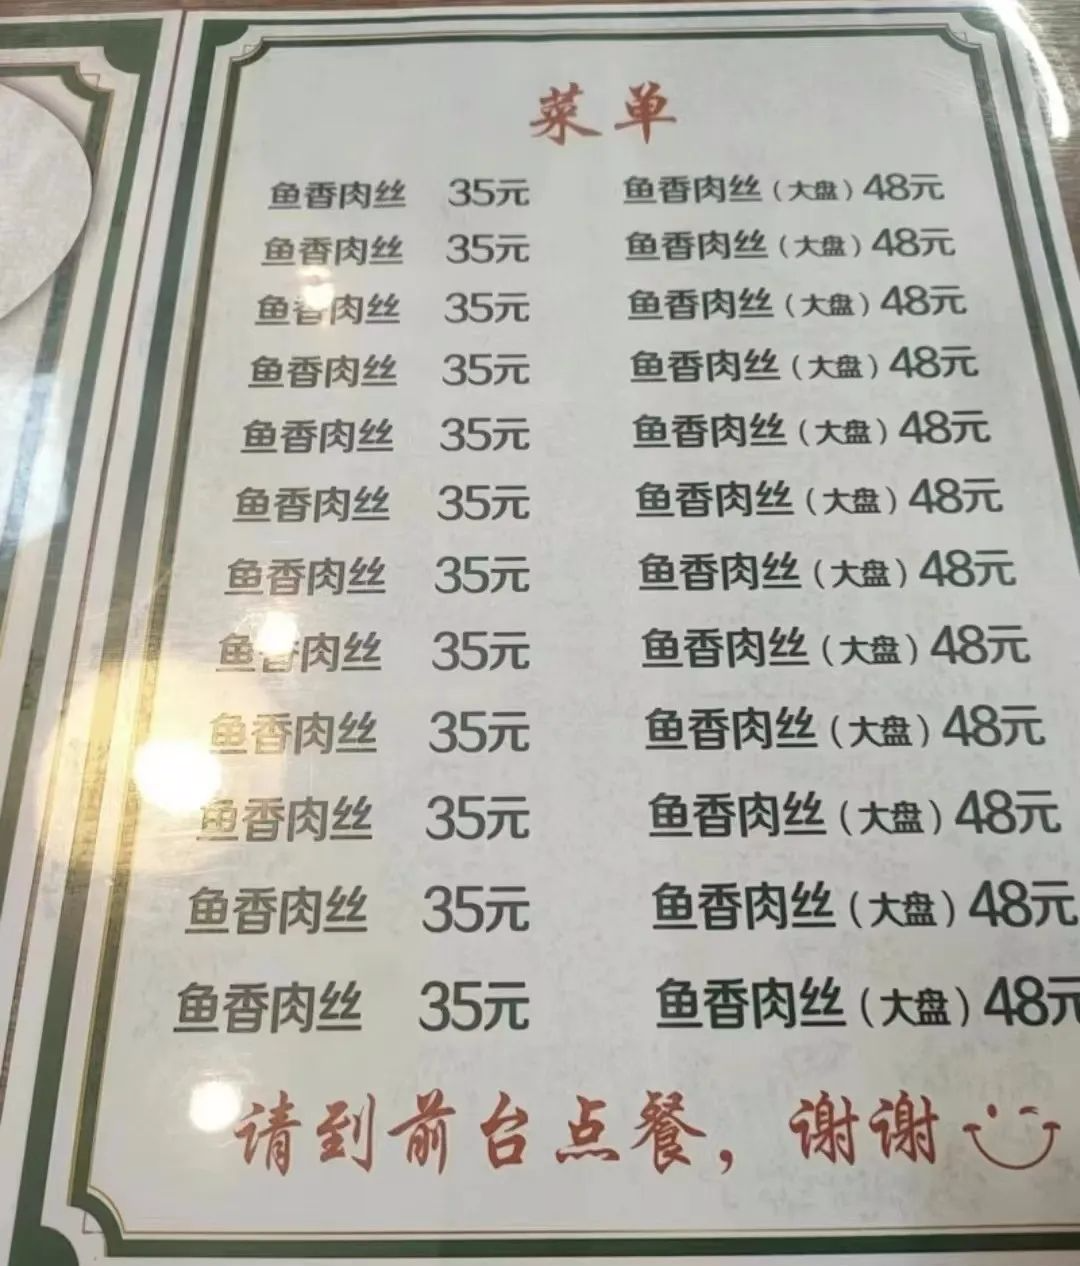 菜单
鱼香肉丝 35元 鱼香肉丝（大盘）48元
鱼香肉丝 35元 鱼香肉丝（大盘）48元
鱼香肉丝 35元 鱼香肉丝（大盘）48元
鱼香肉丝 35元 鱼香肉丝（大盘）48元
鱼香肉丝 35元 鱼香肉丝（大盘）48元
鱼香肉丝 35元 鱼香肉丝（大盘）48元
鱼香肉丝 35元 鱼香肉丝（大盘）48元
鱼香肉丝 35元 鱼香肉丝（大盘）48元
鱼香肉丝 35元 鱼香肉丝（大盘）48元
鱼香肉丝 35元 鱼香肉丝（大盘）48元
鱼香肉丝 35元 鱼香肉丝（大盘）48元
鱼香肉丝 35元 鱼香肉丝（大盘）48元
请到前台点餐，谢谢